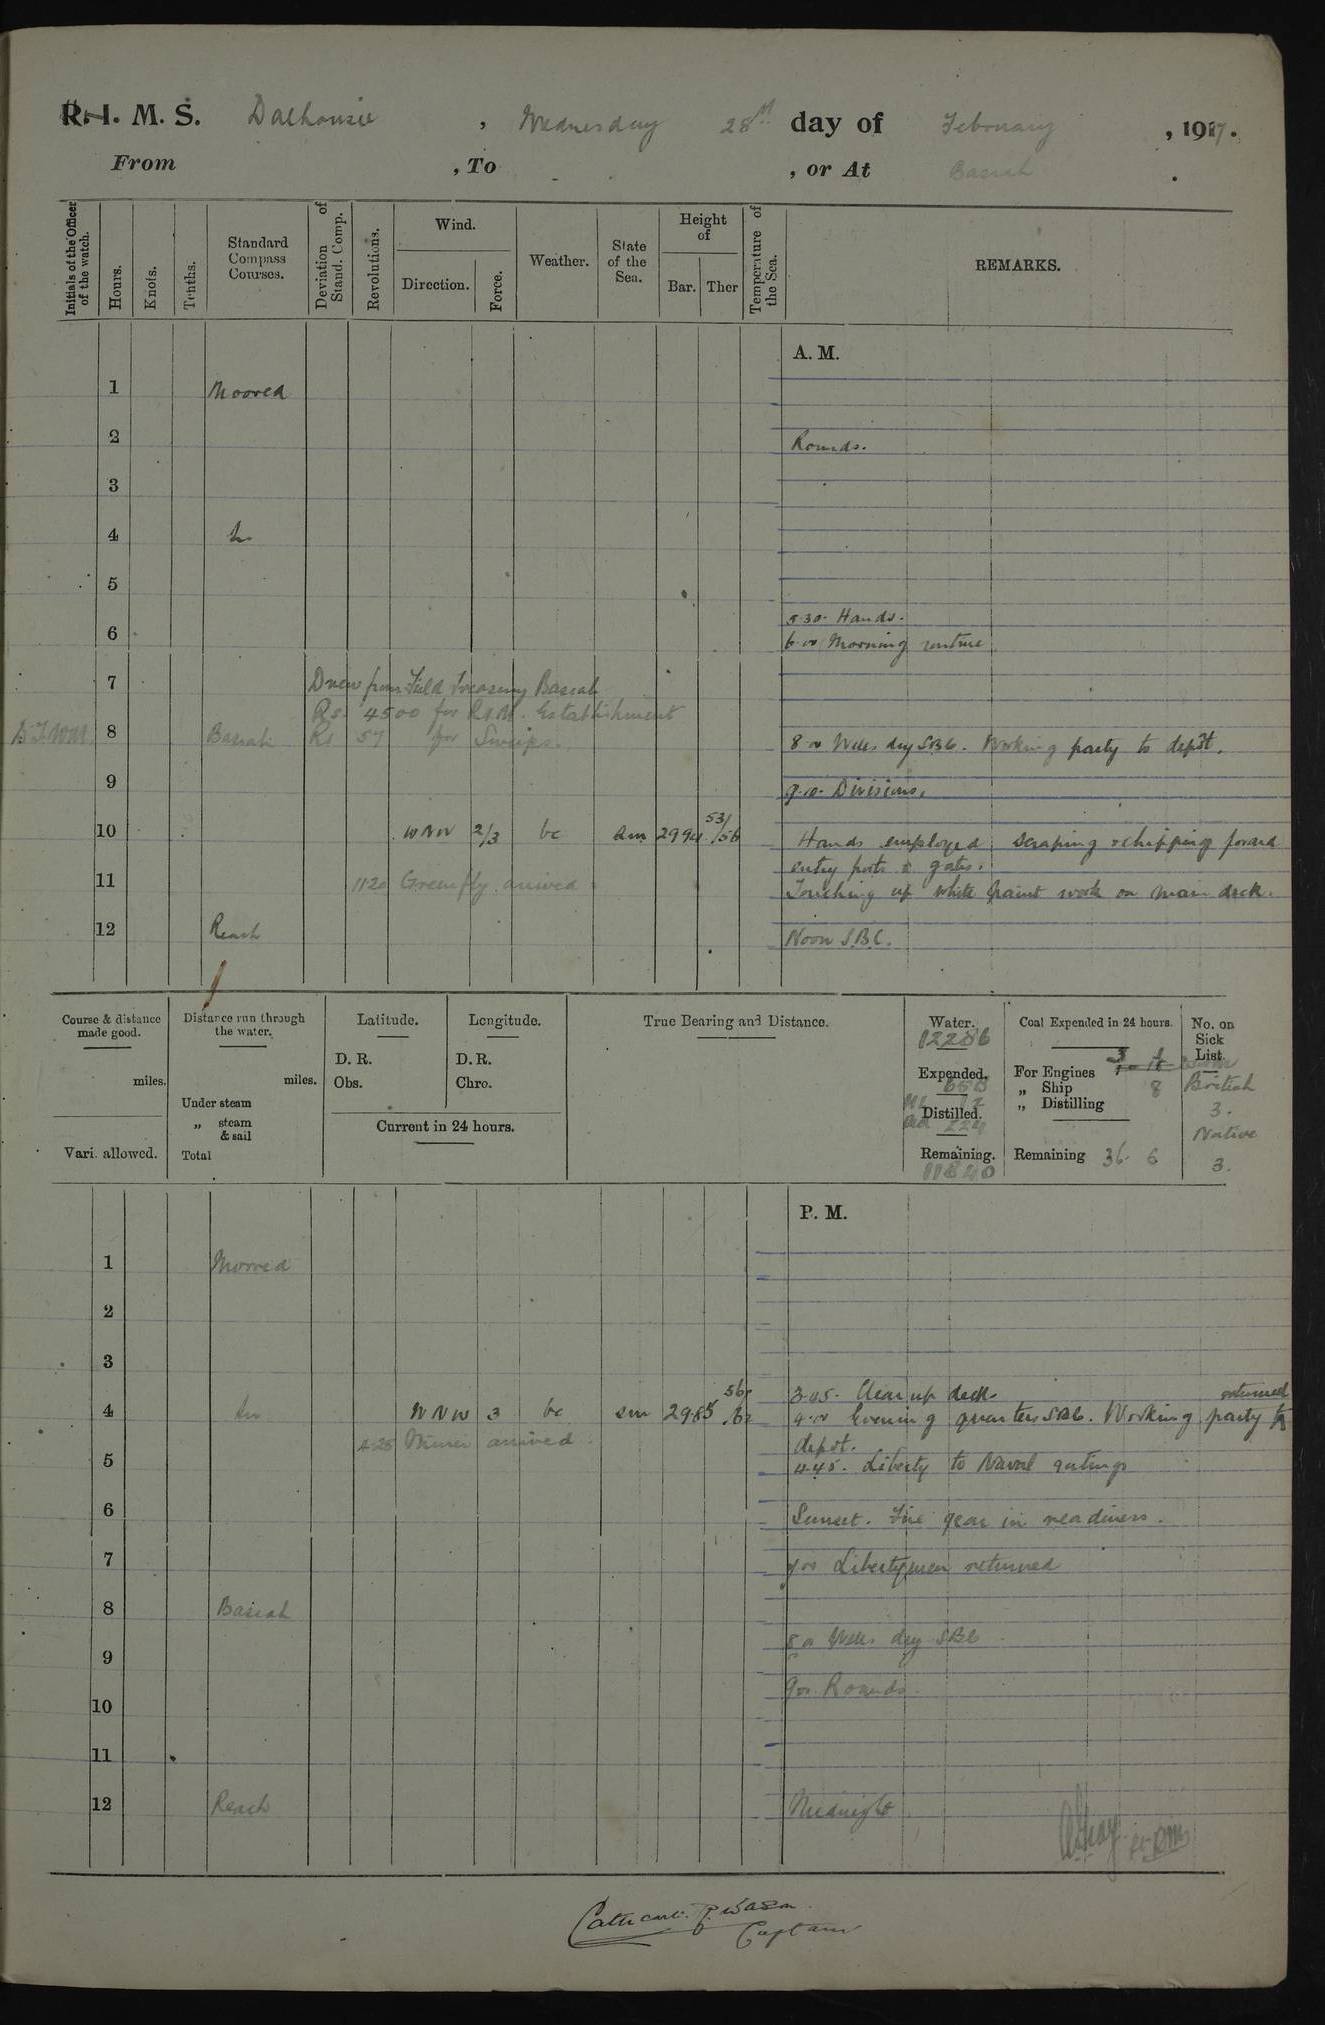 R. I. M. S. Dalhousie, Wednesday 28th day of February, 1917.
From , To , or At Basrah.
Initials of the Officer of the watch.
Hours.
Knots.
Tenths.
Standard Compass Courses.
Deviation of Stand. Comp.
Revolutions.
Wind.
Direction.
Force.
Weather.
State of the Sea.
Height of
Bar.
Ther
Temperature of the Sea.
REMARKS.
A. M.
1 Moored
2 Rounds.
3
4 in
5
5.30. Hands.
6 6.00 Morning routine
7 Drew from Field Treasury Basrah
Rs. 4500 for R.I.M. Establishment
8 Basrah Rs 57 for Sweeps. 8.00 Wells dry SBC. Working party to depôt.
9 9.00. Divisions.
10 WNW 2/3 bc sm 2994 53/56 Hands employed scraping & chipping forward
entry ports & gates.
11 11.20 Greenfly arrived Touching up white paint work on main deck.
12 Reach Noon S.B.C.
Course & distance made good.
miles.
Vari. allowed.
Distance run through the water.
miles.
Under steam
„ steam & sail
Total
Latitude.
D. R.
Obs.
Longitude.
D. R.
Chro.
Current in 24 hours.
True Bearing and Distance.
Water.
12286
Expended.
658
12
Distilled.
224
Remaining.
11840
Coal Expended in 24 hours.
For Engines
„ Ship 8
„ Distilling
Remaining 36. 6
No. on Sick List.
British
3.
Native
3.
P. M.
1 Moored
2
3
3.45. Clear up decks
4 in WNW 3 bc sm 2985 56/62 4.00 Evening quarters SBC. Working party returned to
depot.
4.25 Miner arrived
5 4.45. Liberty to Naval ratings
6 Sunset. Fire gear in readiness.
7 7.00 Libertymen returned
8 Basrah
8.0 Wells dry SBC
9
9.00. Rounds.
10
11
12 Reach Midnight
Cathcart R. Wason
Captain